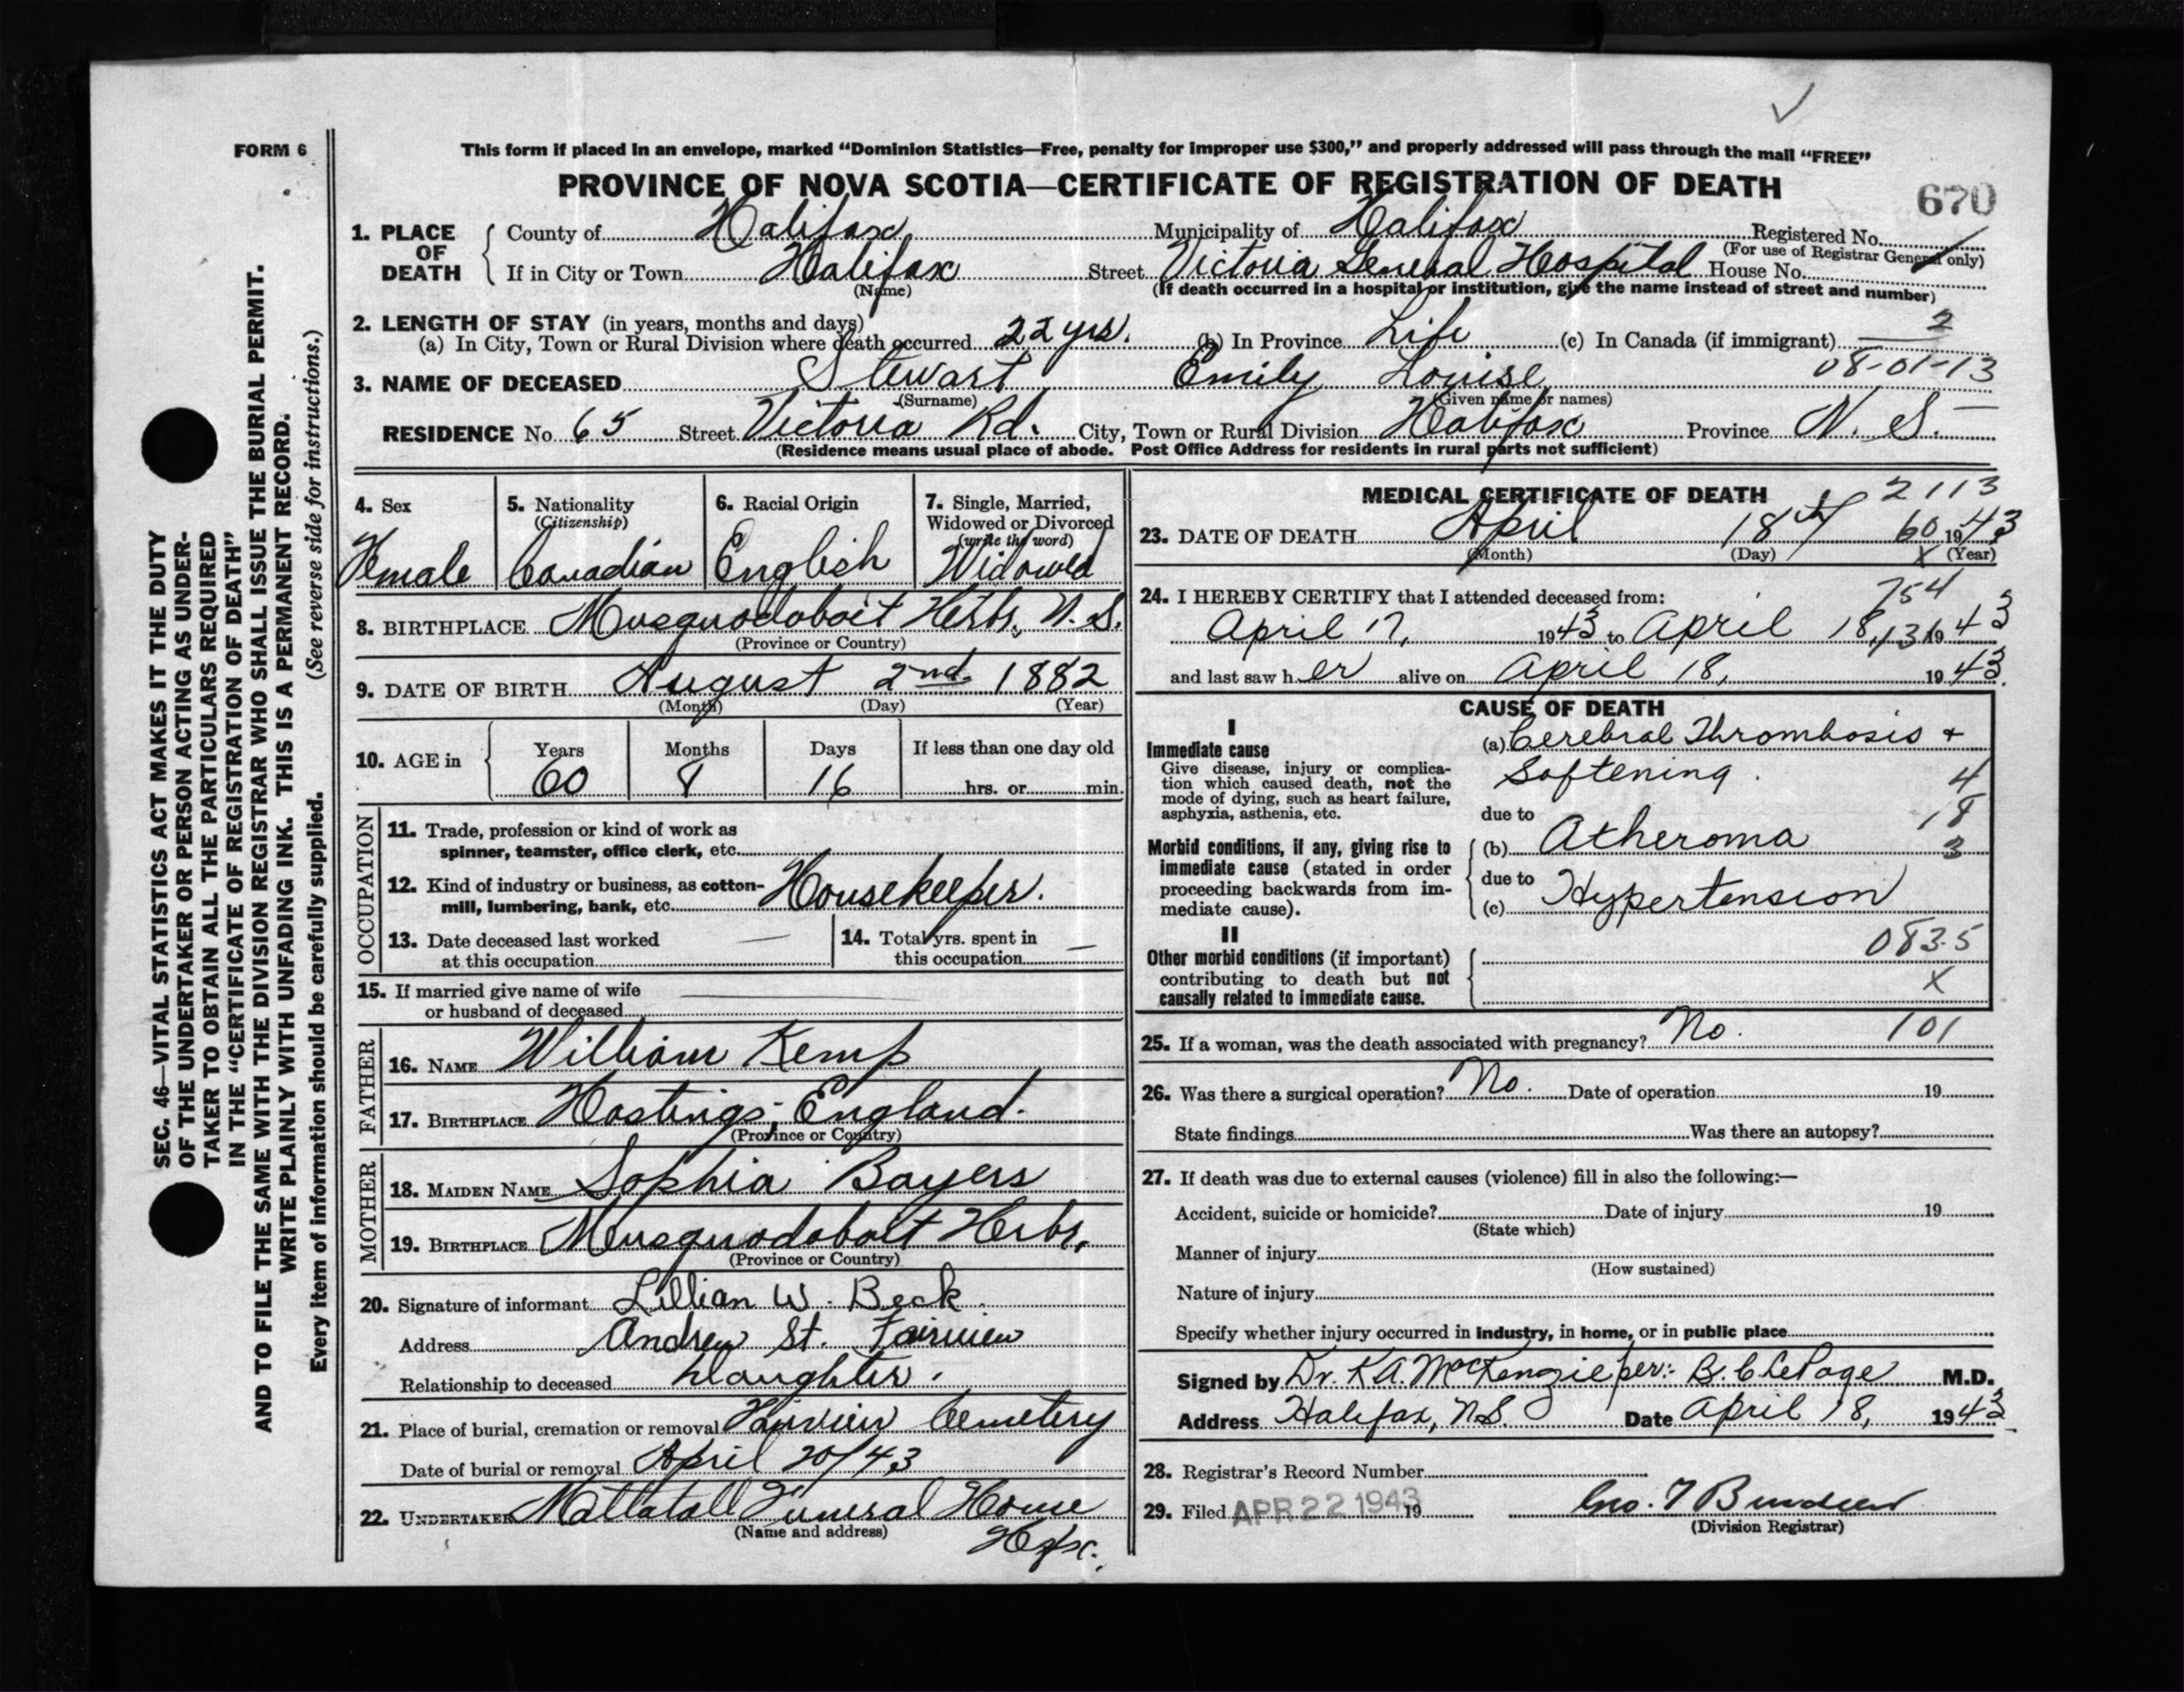 FORM 6
This form if placed in an envelope, marked “Dominion Statistics—Free, penalty for improper use $300,” and properly addressed will pass through the mail “FREE”
PROVINCE OF NOVA SCOTIA—CERTIFICATE OF REGISTRATION OF DEATH
670
1. PLACE OF DEATH
County of Halifax Municipality of Halifax Registered No.
(For use of Registrar General only)
If in City or Town Halifax Street Victoria General Hospital House No.
(Name) (If death occurred in a hospital or institution, give the name instead of street and number)
2. LENGTH OF STAY (in years, months and days)
(a) In City, Town or Rural Division where death occurred 22 yrs. (b) In Province Life (c) In Canada (if immigrant) 2
08-01-13
3. NAME OF DECEASED Stewart Emily Louise
(Surname) (Given name or names)
RESIDENCE No. 65 Street Victoria Rd. City, Town or Rural Division Halifax Province N. S.
(Residence means usual place of abode. Post Office Address for residents in rural parts not sufficient)
4. Sex
Female
5. Nationality
(Citizenship)
Canadian
6. Racial Origin
English
7. Single, Married,
Widowed or Divorced
(write the word)
Widowed
8. BIRTHPLACE Musquodoboit Hrbr., N. S.
(Province or Country)
9. DATE OF BIRTH August 2nd. 1882
(Month) (Day) (Year)
10. AGE in
Years Months Days If less than one day old
60 8 16 hrs. or min.
OCCUPATION
11. Trade, profession or kind of work as
spinner, teamster, office clerk, etc.
12. Kind of industry or business, as cotton-
mill, lumbering, bank, etc. Housekeeper.
13. Date deceased last worked
at this occupation —
14. Total yrs. spent in
this occupation —
15. If married give name of wife
or husband of deceased
FATHER
16. NAME William Kemp
17. BIRTHPLACE Hastings, England.
(Province or Country)
MOTHER
18. MAIDEN NAME Sophia Bayers
19. BIRTHPLACE Musquodoboit Hrbr.
(Province or Country)
20. Signature of informant Lillian W. Beck
Address Andrew St. Fairview
Relationship to deceased Daughter.
21. Place of burial, cremation or removal Cemetery
Date of burial or removal April 20/43
22. UNDERTAKER Mattatall Funeral Home
(Name and address) Hfx.
MEDICAL CERTIFICATE OF DEATH
2113
23. DATE OF DEATH April 18th 60 1943
(Month) (Day) X (Year)
754
24. I HEREBY CERTIFY that I attended deceased from:
April 17, 1943 to April 18, 131943
and last saw her alive on April 18, 1943.
CAUSE OF DEATH
I
Immediate cause
Give disease, injury or complica-
tion which caused death, not the
mode of dying, such as heart failure,
asphyxia, asthenia, etc.
(a) Cerebral Thrombosis +
Softening. 4
due to 18
Morbid conditions, if any, giving rise to
immediate cause (stated in order
proceeding backwards from im-
mediate cause).
(b) Atheroma 3
due to
(c) Hypertension
II
Other morbid conditions (if important)
contributing to death but not
causally related to immediate cause.
083.5
X
25. If a woman, was the death associated with pregnancy? No. 101
26. Was there a surgical operation? No. Date of operation 19
State findings Was there an autopsy?
27. If death was due to external causes (violence) fill in also the following:—
Accident, suicide or homicide? Date of injury 19
(State which)
Manner of injury
(How sustained)
Nature of injury
Specify whether injury occurred in industry, in home, or in public place
Signed by Dr. K.A. MacKenzie per:- B. C LePage M.D.
Address Halifax, N.S. Date April 18, 1943.
28. Registrar’s Record Number
29. Filed APR 22 1943 19
(Division Registrar)
SEC. 46—VITAL STATISTICS ACT MAKES IT THE DUTY
OF THE UNDERTAKER OR PERSON ACTING AS UNDER-
TAKER TO OBTAIN ALL THE PARTICULARS REQUIRED
IN THE “CERTIFICATE OF REGISTRATION OF DEATH”
AND TO FILE THE SAME WITH THE DIVISION REGISTRAR WHO SHALL ISSUE THE BURIAL PERMIT.
WRITE PLAINLY WITH UNFADING INK. THIS IS A PERMANENT RECORD.
Every item of information should be carefully supplied. (See reverse side for instructions.)